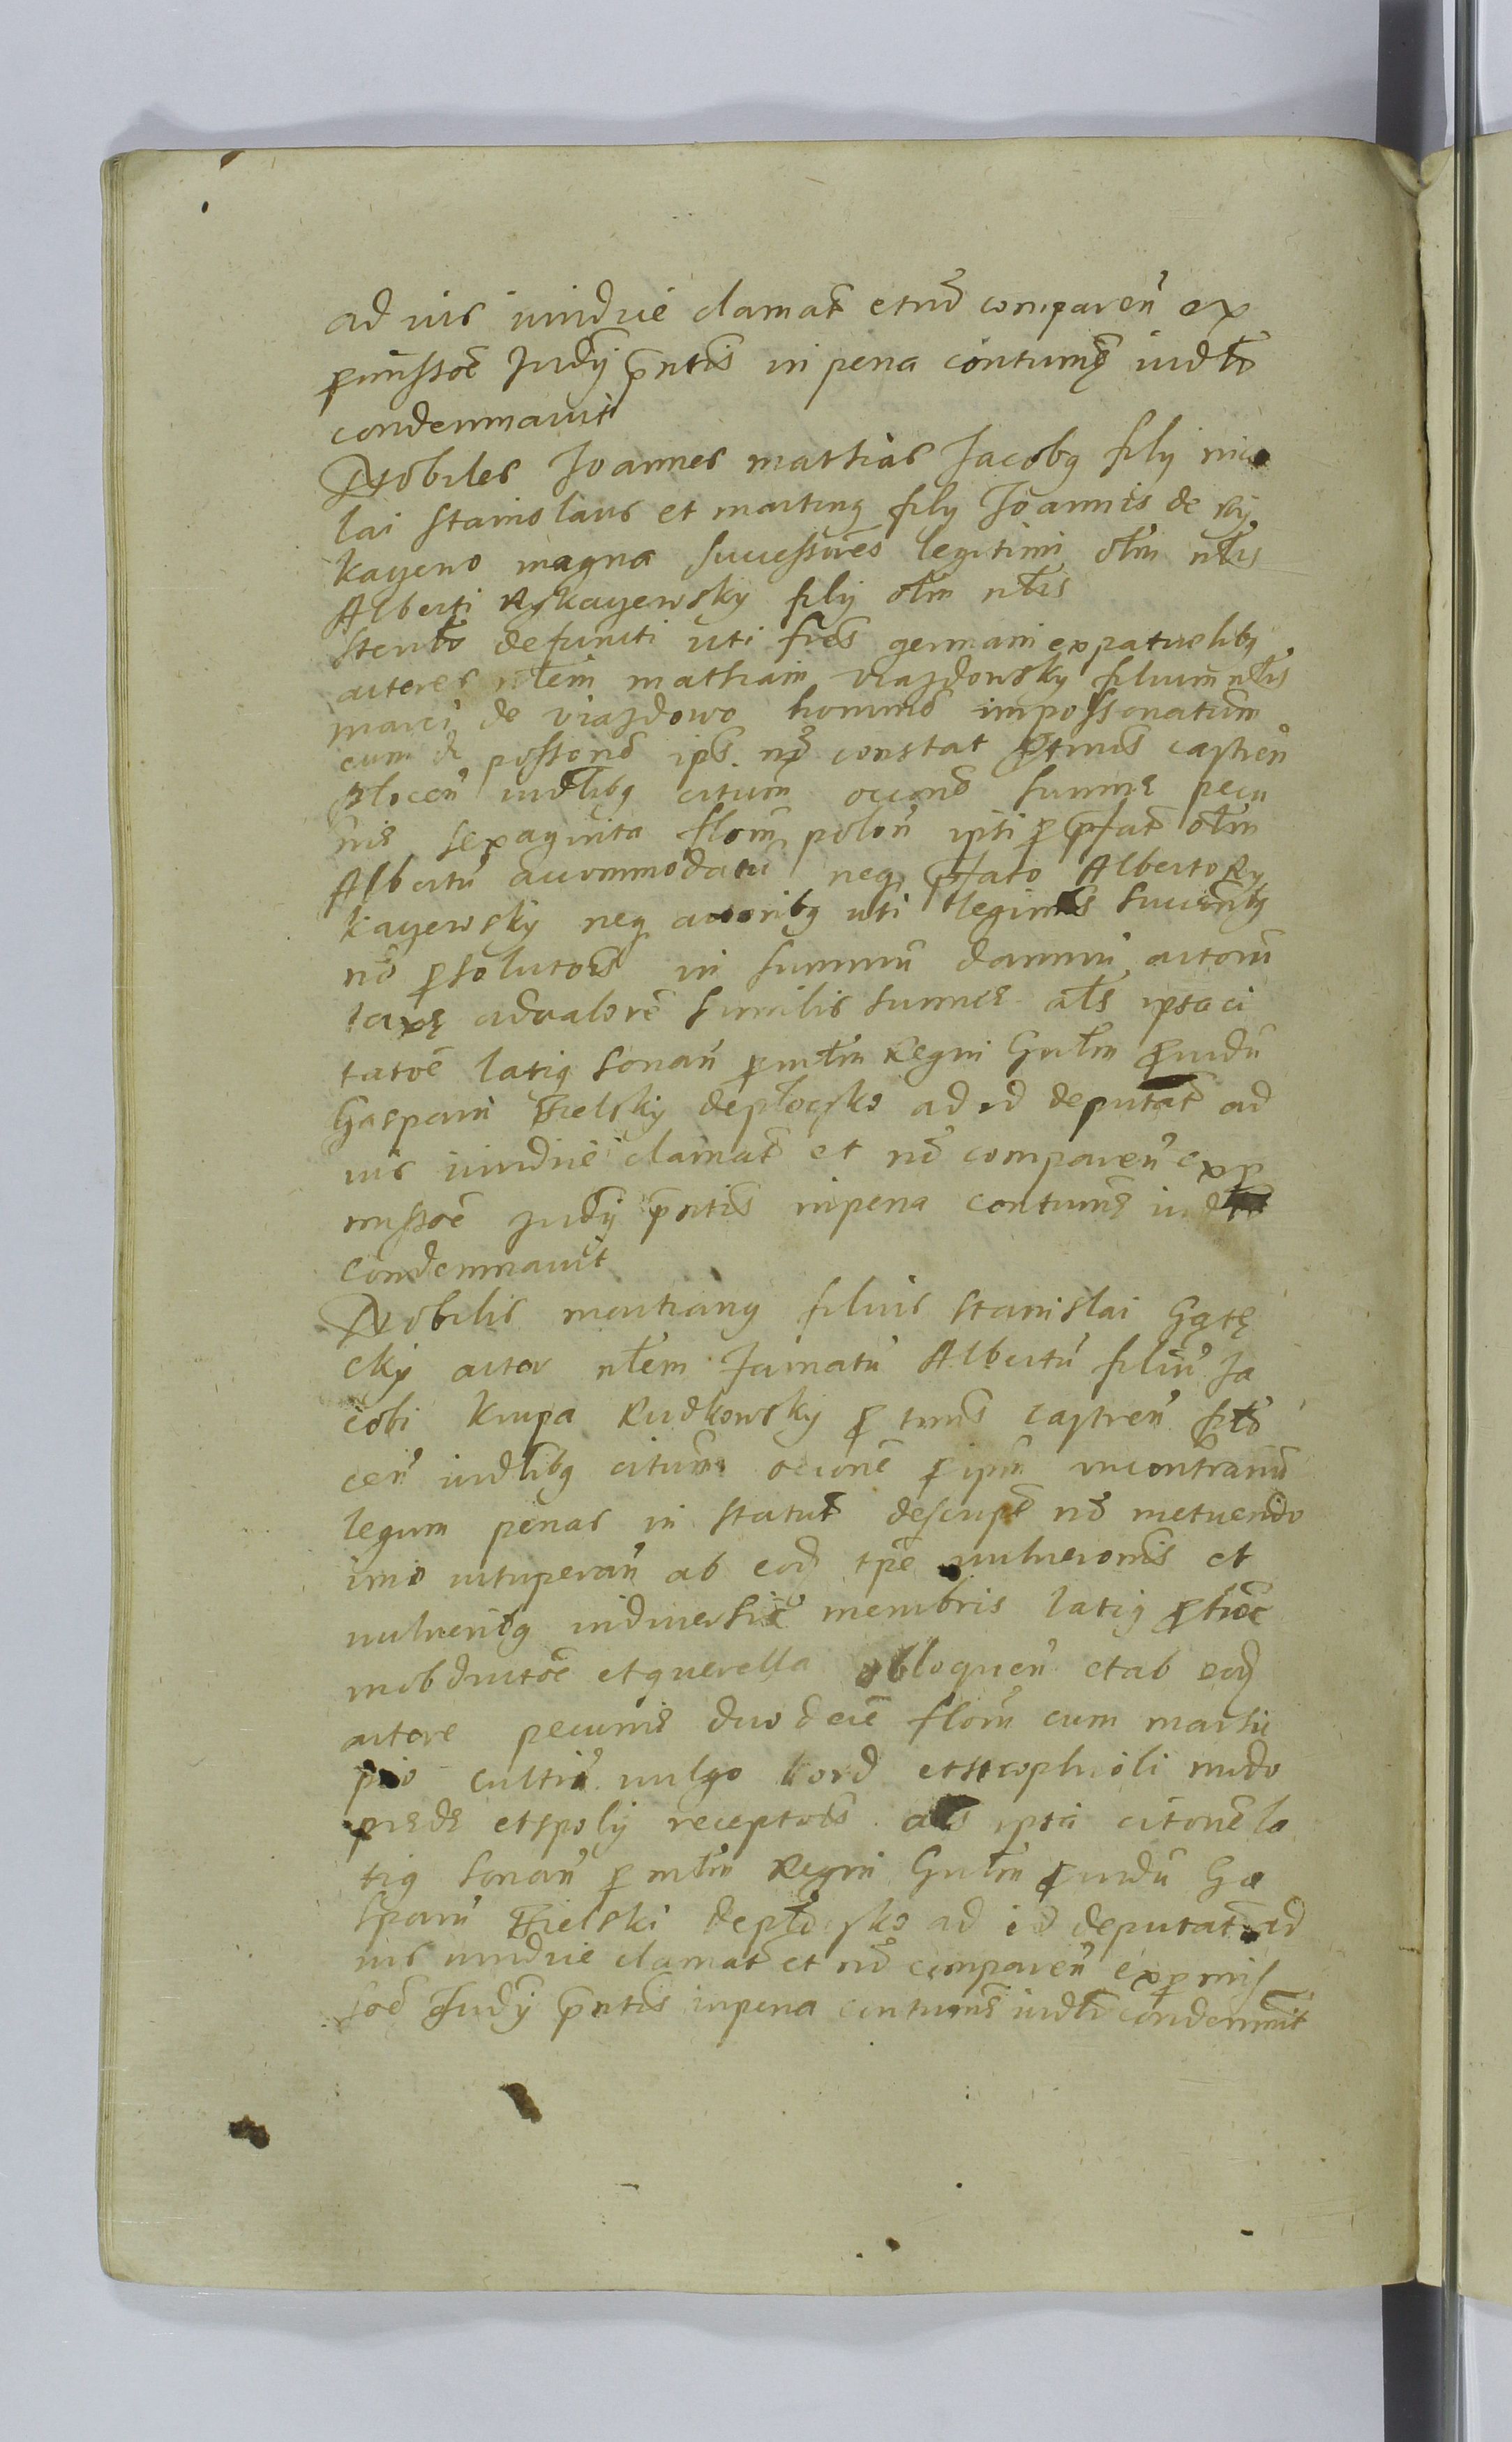 ad ius iuridice clamat et nō comparen̄ ex
ꝑmissoē Judÿ pn̄tis in pena contumę iudłō
condemnauit
Nobiles Joannes mathias Jacobꝯ filÿ nico
lai stanislaus et martinꝯ filÿ Joannis de Rÿ
kayewo magna successores legitimi ołm nłis
Alberti Rÿkayewskÿ filÿ ołm nłis
steriłr defuncti uti fr̄es germani ex patruelibꝯ
actores nłem mathiam Viazdowskÿ filium nłis
marci de viazdowo hominē impossonatum
cum de possionē ips. nō constat ꝑ tmīs castren̄
płocen̄ iudłibꝯ citum occōne summę pecu
nię sexaginta florū polon̄ ipsi ꝑ pfat ołm
Albertū accommodatū neqꝫ pfato Alberto Rÿ
kayewskÿ neqꝫ actoribꝯ uti legimis succōribꝯ
nō ꝑsolutoēs in summū damnū actorū
taxę ad valorē similis summę ałs ipsa ci
tatoē latiꝯ sonan̄ ꝑ młm Regni Gnłm ꝓuidū
Gasparū Bielskÿ de płoczko ad id deputat ad
ius iuridice clamat et nō comparen̄ ex ꝑ
missoē Judÿ pn̄tis in pena contumę iudłō
condemnauit
Nobilis martianꝯ filius stanislai Gątę
ckÿ actor nłem Jamatū Albertū filiū Ja
cobi krupa Rudkowskÿ ꝑ tmīs castren̄ płō
cen̄ iudłibꝯ citum occōnē ꝑ ipm̄ incontrariū
legum penas in statut̄ descript̄ nō metuendo
imo uituperan̄ ab eodꝫ tpē uulneronis et
uulneribꝯ in diuersis membris latiꝯ ꝓ hoc
in obductoē et querella obloquen̄ et ab eodꝫ
actore pecunię duodecē florū cum marsu
pio cultrū uulgo kord et strophioli nudo
piędę et spolÿ receptoēs ałs ipsa citonē la
tiꝯ sonan̄ ꝑ młm Regni Gnłm ꝓuidū Ga
sparū Bielski de płoczko ad id deputat ad
ius iuridice clamat et nō comparen̄ ex ꝑmiss
soē Judÿ pn̄tis in pena contumę iudłō condemnīt